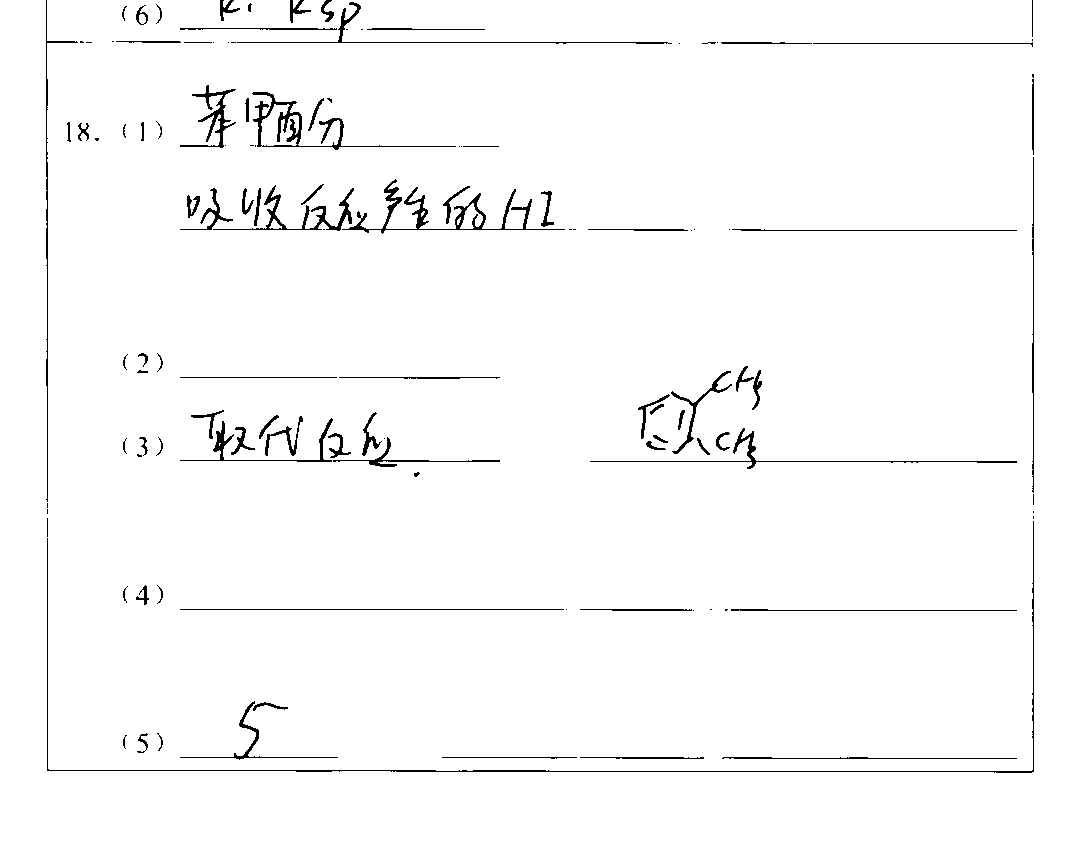 (6) K· Ksp
18. (1) 苯甲酚
吸收反应产生的HI
(2)
(3) 取代反应. CH3
CH3
(4)
(5) 5